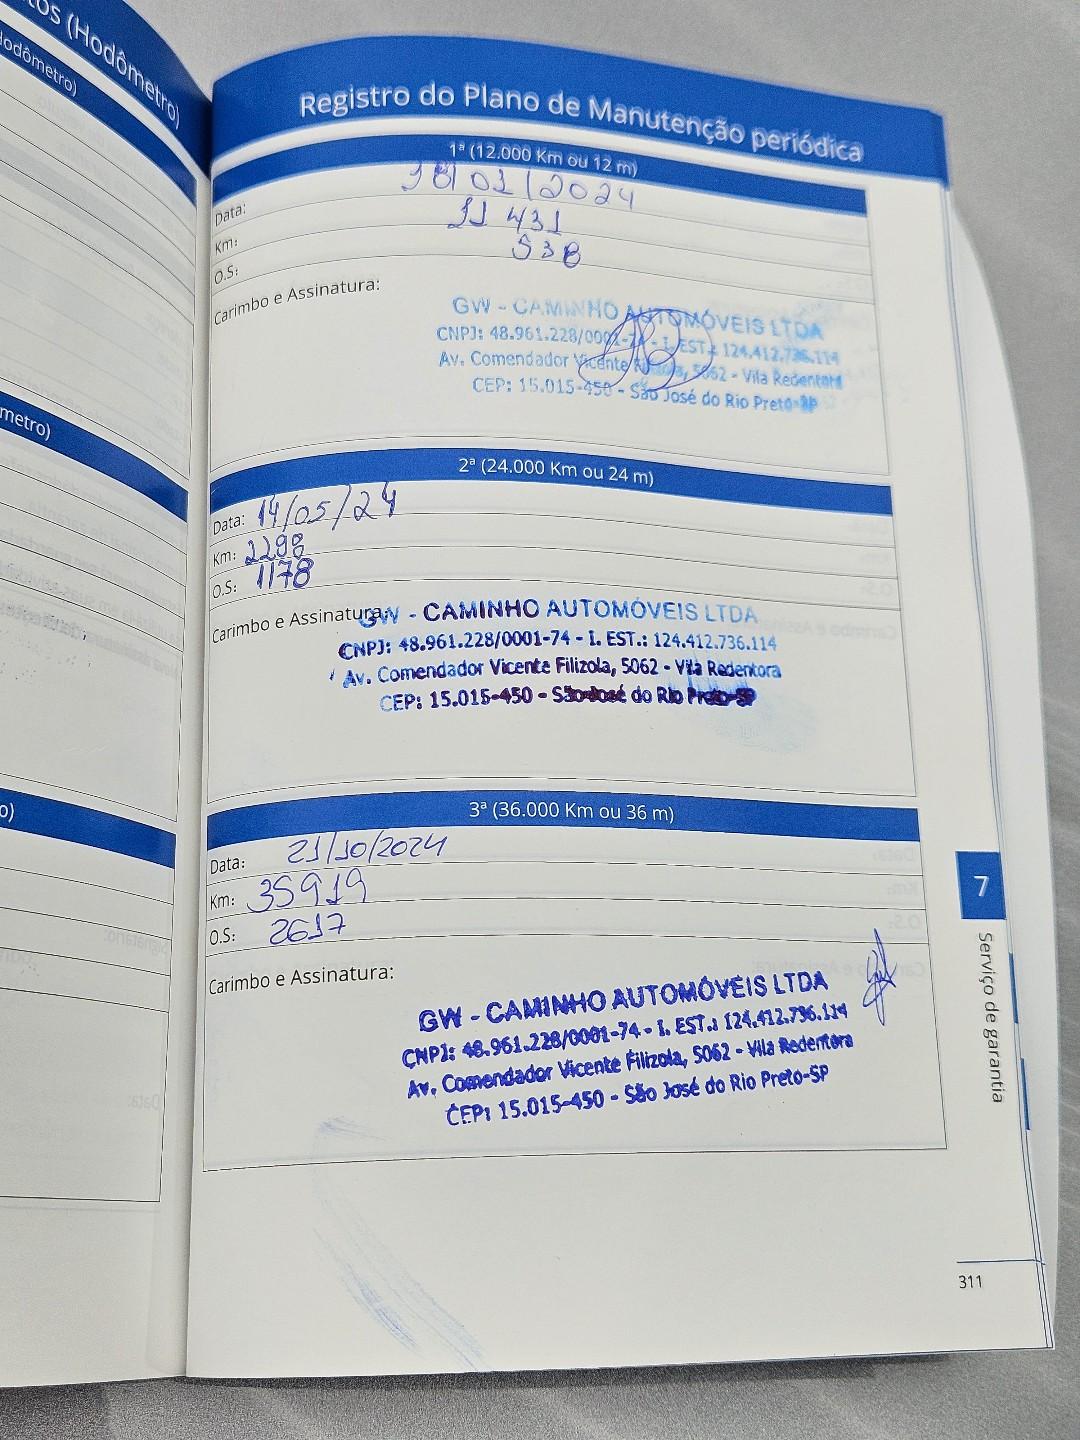 tos (Hodômetro)
Hodômetro)
metro)
o)
Registro do Plano de Manutenção periódica
1ª (12.000 Km ou 12 m)
Data: 18/01/2024
Km: 11 431
O.S: 538
Carimbo e Assinatura:
GW - CAMINHO AUTOMÓVEIS LTDA
CNPJ: 48.961.228/0001-74 - I. EST.: 124.412.736.114
Av. Comendador Vicente Filizola, 5062 - Vila Redentora
CEP: 15.015-450 - São José do Rio Preto-SP
2ª (24.000 Km ou 24 m)
Data: 14/05/24
Km: 2298
O.S: 1178
Carimbo e Assinatura:
GW - CAMINHO AUTOMÓVEIS LTDA
CNPJ: 48.961.228/0001-74 - I. EST.: 124.412.736.114
Av. Comendador Vicente Filizola, 5062 - Vila Redentora
CEP: 15.015-450 - São José do Rio Preto-SP
3ª (36.000 Km ou 36 m)
Data: 21/10/2024
Km: 35919
O.S: 2617
Carimbo e Assinatura:
GW - CAMINHO AUTOMÓVEIS LTDA
CNPJ: 48.961.228/0001-74 - I. EST.: 124.412.736.114
Av. Comendador Vicente Filizola, 5062 - Vila Redentora
CEP: 15.015-450 - São José do Rio Preto-SP
7
Serviço de garantia
311